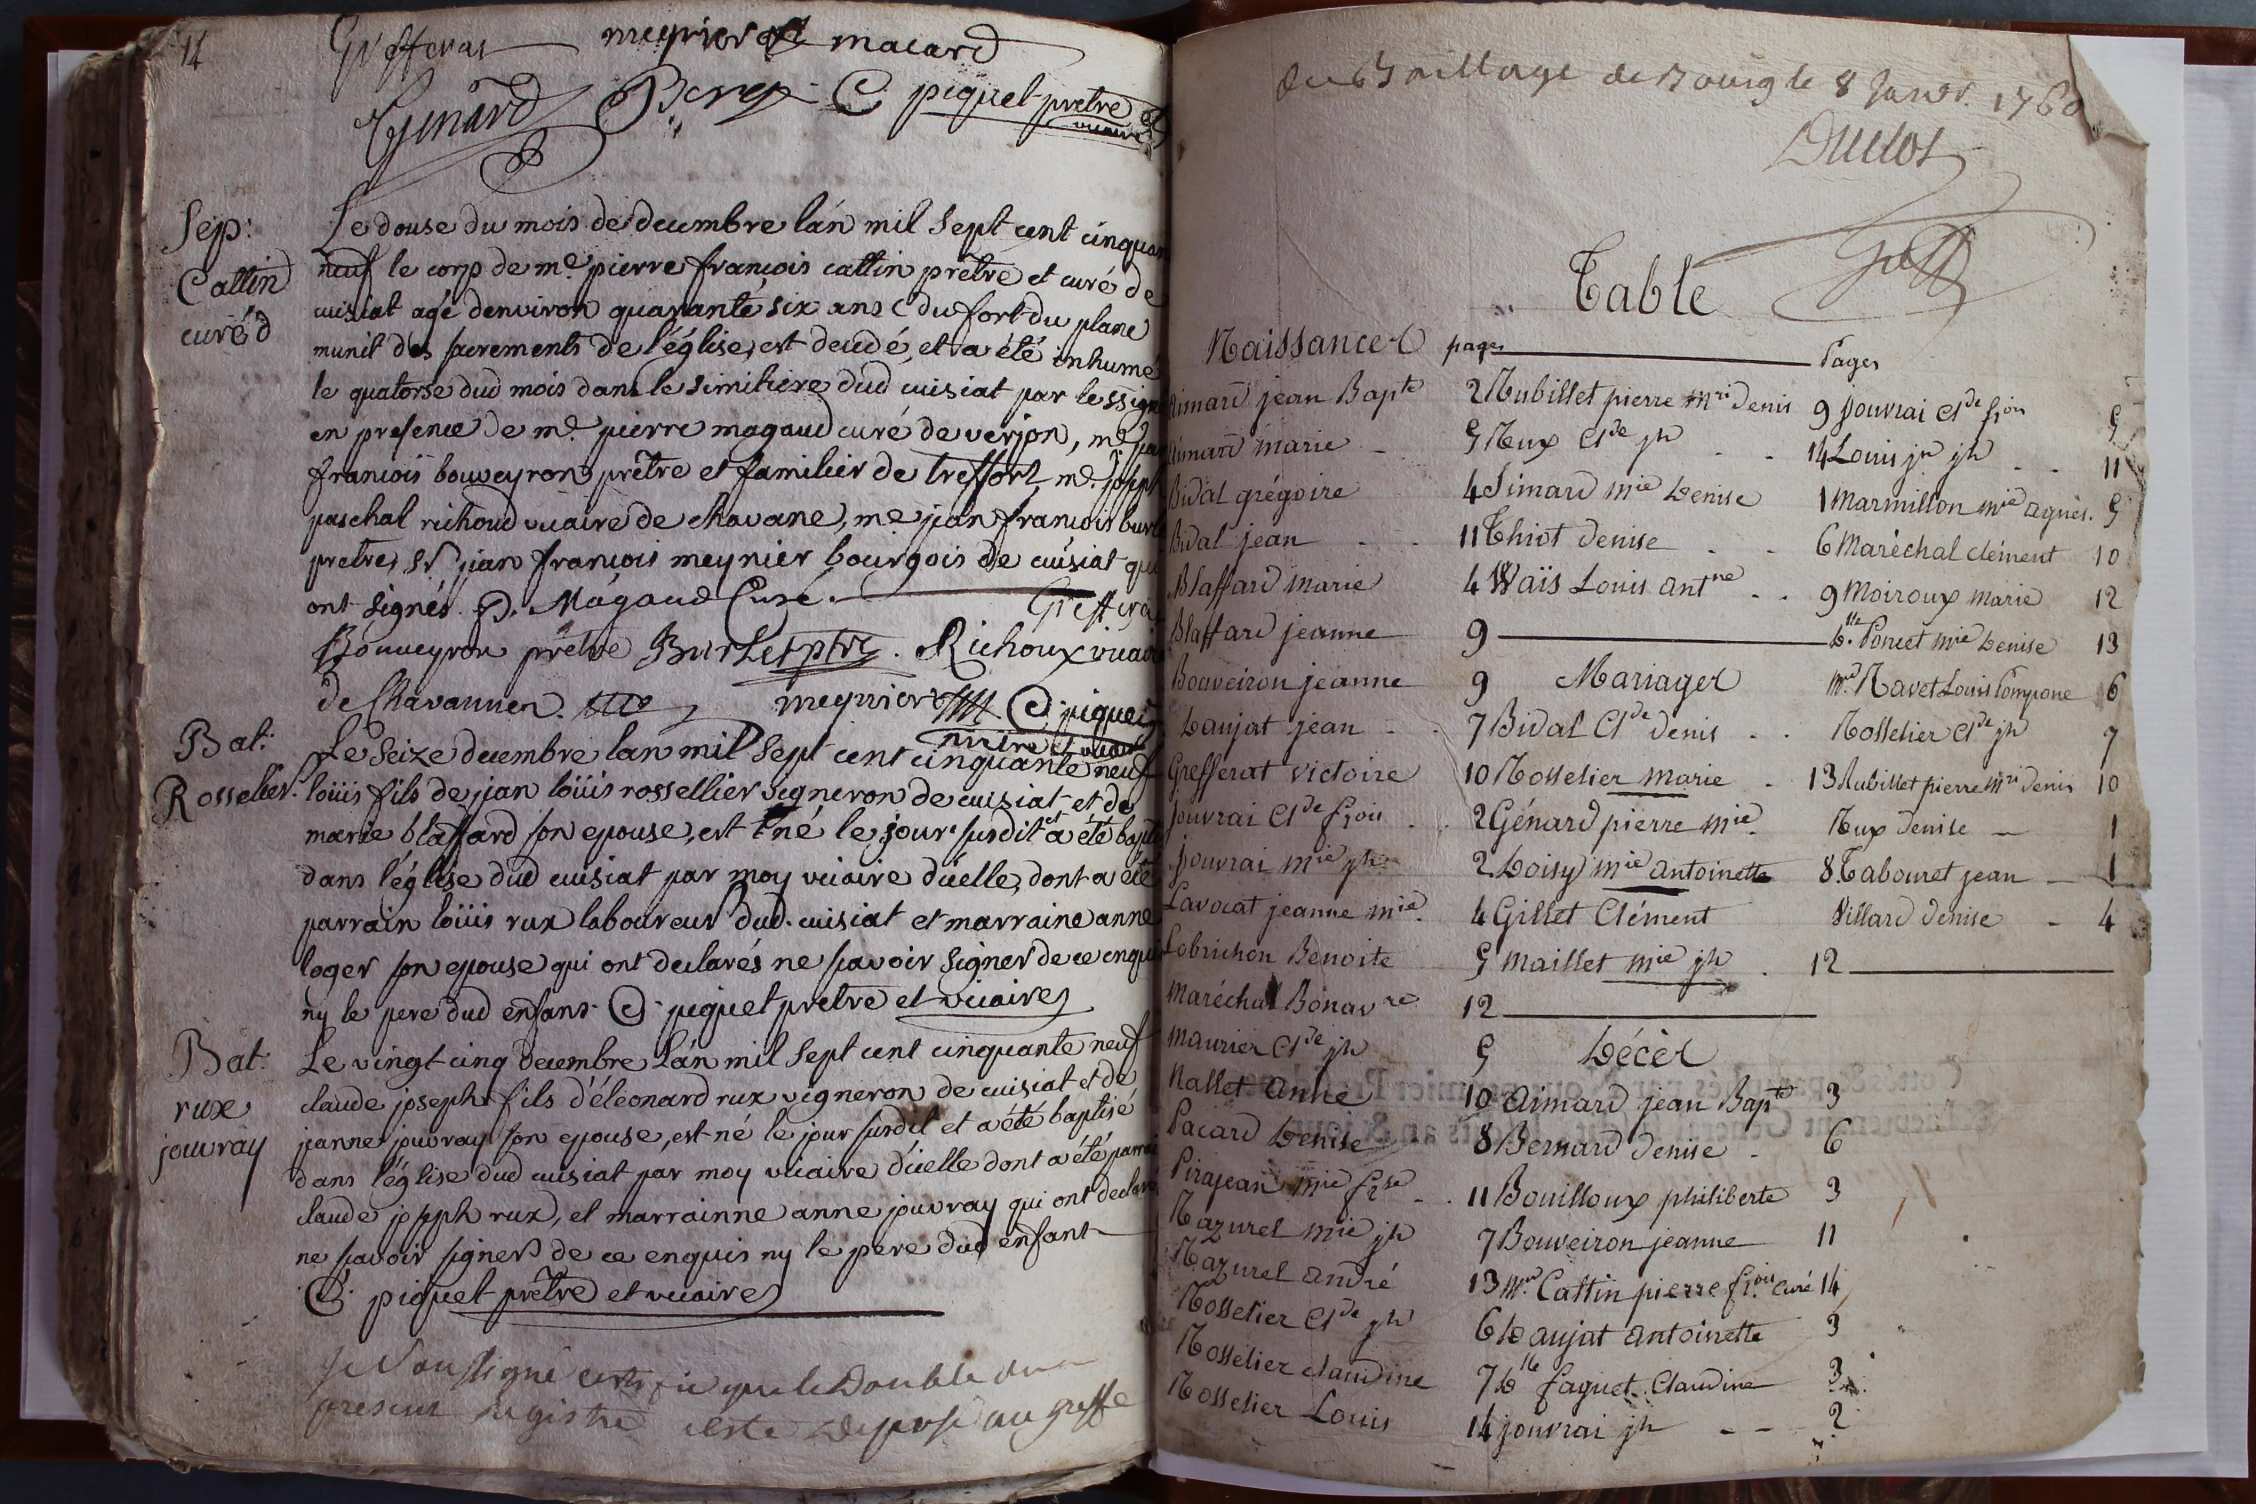 14
Grefferat meynier macard
Genard C. piquet prêtre et
vicaire
Sep:
Cattin
curé d
Le douse du mois de decembre lán mil sept cent cinquan
neuf le corp de me pierre francois cattin prêtre et curé de
cuisiat agé denviron quarante six ans du fort du plane
munit des sacrements de l'église, est decedé, et a été inhumé
le quatorse dud mois dans le similiere dud cuisiat par le ssigné
en presence de me. pierre magaud curé de verjon, me. jan
francois bouveyron prêtre et familier de treffort, me. joseph
paschal richoud vicaire de chavane, me jean francois burle
pretre, sr. jean françois meynier bourgois de cuisiat qui
ont signés. P. Magaud Curé. Grefferat
Bouveyron prêtre Burlet ptre. Richoux vicaire
de Chavannes. meynier C. piquet
prêtre et vicaire
Bat:
Rossellier.
Le seize decembre lan mil sept cent cinquante neuf
loüis fils de jan loüis rossellier vigneron de cuisiat et de
marie blaffard son epouse, est né le jour susdit et a été bapti
dans l'église dud cuisiat par moy vicaire d'icelle, dont a été
parrain loüis rux laboureur dud. cuisiat et marraine anne
loger son epouse qui ont declarés ne scavoir signer de ce enquis
ny le pere dud enfans. C. piquet pretre et vicaire
Bat:
rux
jouvray
Le vingt cinq decembre Lán mil sept cent cinquante neuf
claude joseph fils d'éleonard rux vigneron de cuisiat et de
jeanne jouvray son epouse, est né le jour susdit et a été baptisé
dans l'église dud cuisiat par moy vicaire d'icelle dont a été parrai
claude joseph rux, et marrainne anne jouvray qui ont declaré
ne scavoir signer de ce enquis ny le pere dud enfant
C. piquet prêtre et vicaire
Je Soussigné certifie que le Double du
present registre a esté deposé au greffe
du Baillage de Bourg le 8 Janvr. 1760
Duclos
Greff
Table
Naissances pages
Aimard jean Bapte 2
Aimard marie - 5
Bidal grégoire 4
Bidal jean - - 11
Blaffard marie 4
Blaffard jeanne 9
Bouveiron jeanne 9
Daujat jean - - 7
Grefferat victoire 10
Jouvrai Cl.de f.çois - 2
Jouvrai m.ie jh 2
Lavocat jeanne m.ie 4
Lobrichon Benoite 5
Maréchal Bonav.re 12
Maurier Cl.de jh 5
Nallet anne 10
Pacard Denise 8
Pirajean m.ie f.se - 11
Razurel m.ie jh 7
Razurel André 13
Rosselier Cl.de jh 6
Rosselier claudine 7
Rosselier Louis 14
Rubillet pierre m.ri denis 9
Rux Cl.de jh - - 14
Simard m.ie Denise 1
Thiot Denise - - 6
Waïs Louis ant.ne - - 9
Mariages
Bidal Cl.de denis - -
Rosselier marie - 13
Génard pierre m.ie
Loisy m.ie antoinette 8
Gillet Clément
Maillet m.ie jh - 12
Décès
Aimard jean Bap.te 3
Bernard Denise - 6
Bouilloux philiberte 3
Bouveiron jeanne 11
Mre. Cattin pierre f.çois curé 14
Daujat antoinette 3
D.lle faguet Claudine 3
jouvrai jh - - - 2
Pages
Jouvrai Cl.de f.çois 5
Louis j.n jh - - 11
Marmillon m.ie agnès. 5
Maréchal clément 10
Moiroux marie 12
D.lle Poncet m.ie Denise 13
Mre. Ravet Louis Pompone 6
Rosselier Cl.de jh 7
Rubillet pierre m.ri denis 10
Rux Denise - 1
Tabouret jean - 1
Villard Denise - 4